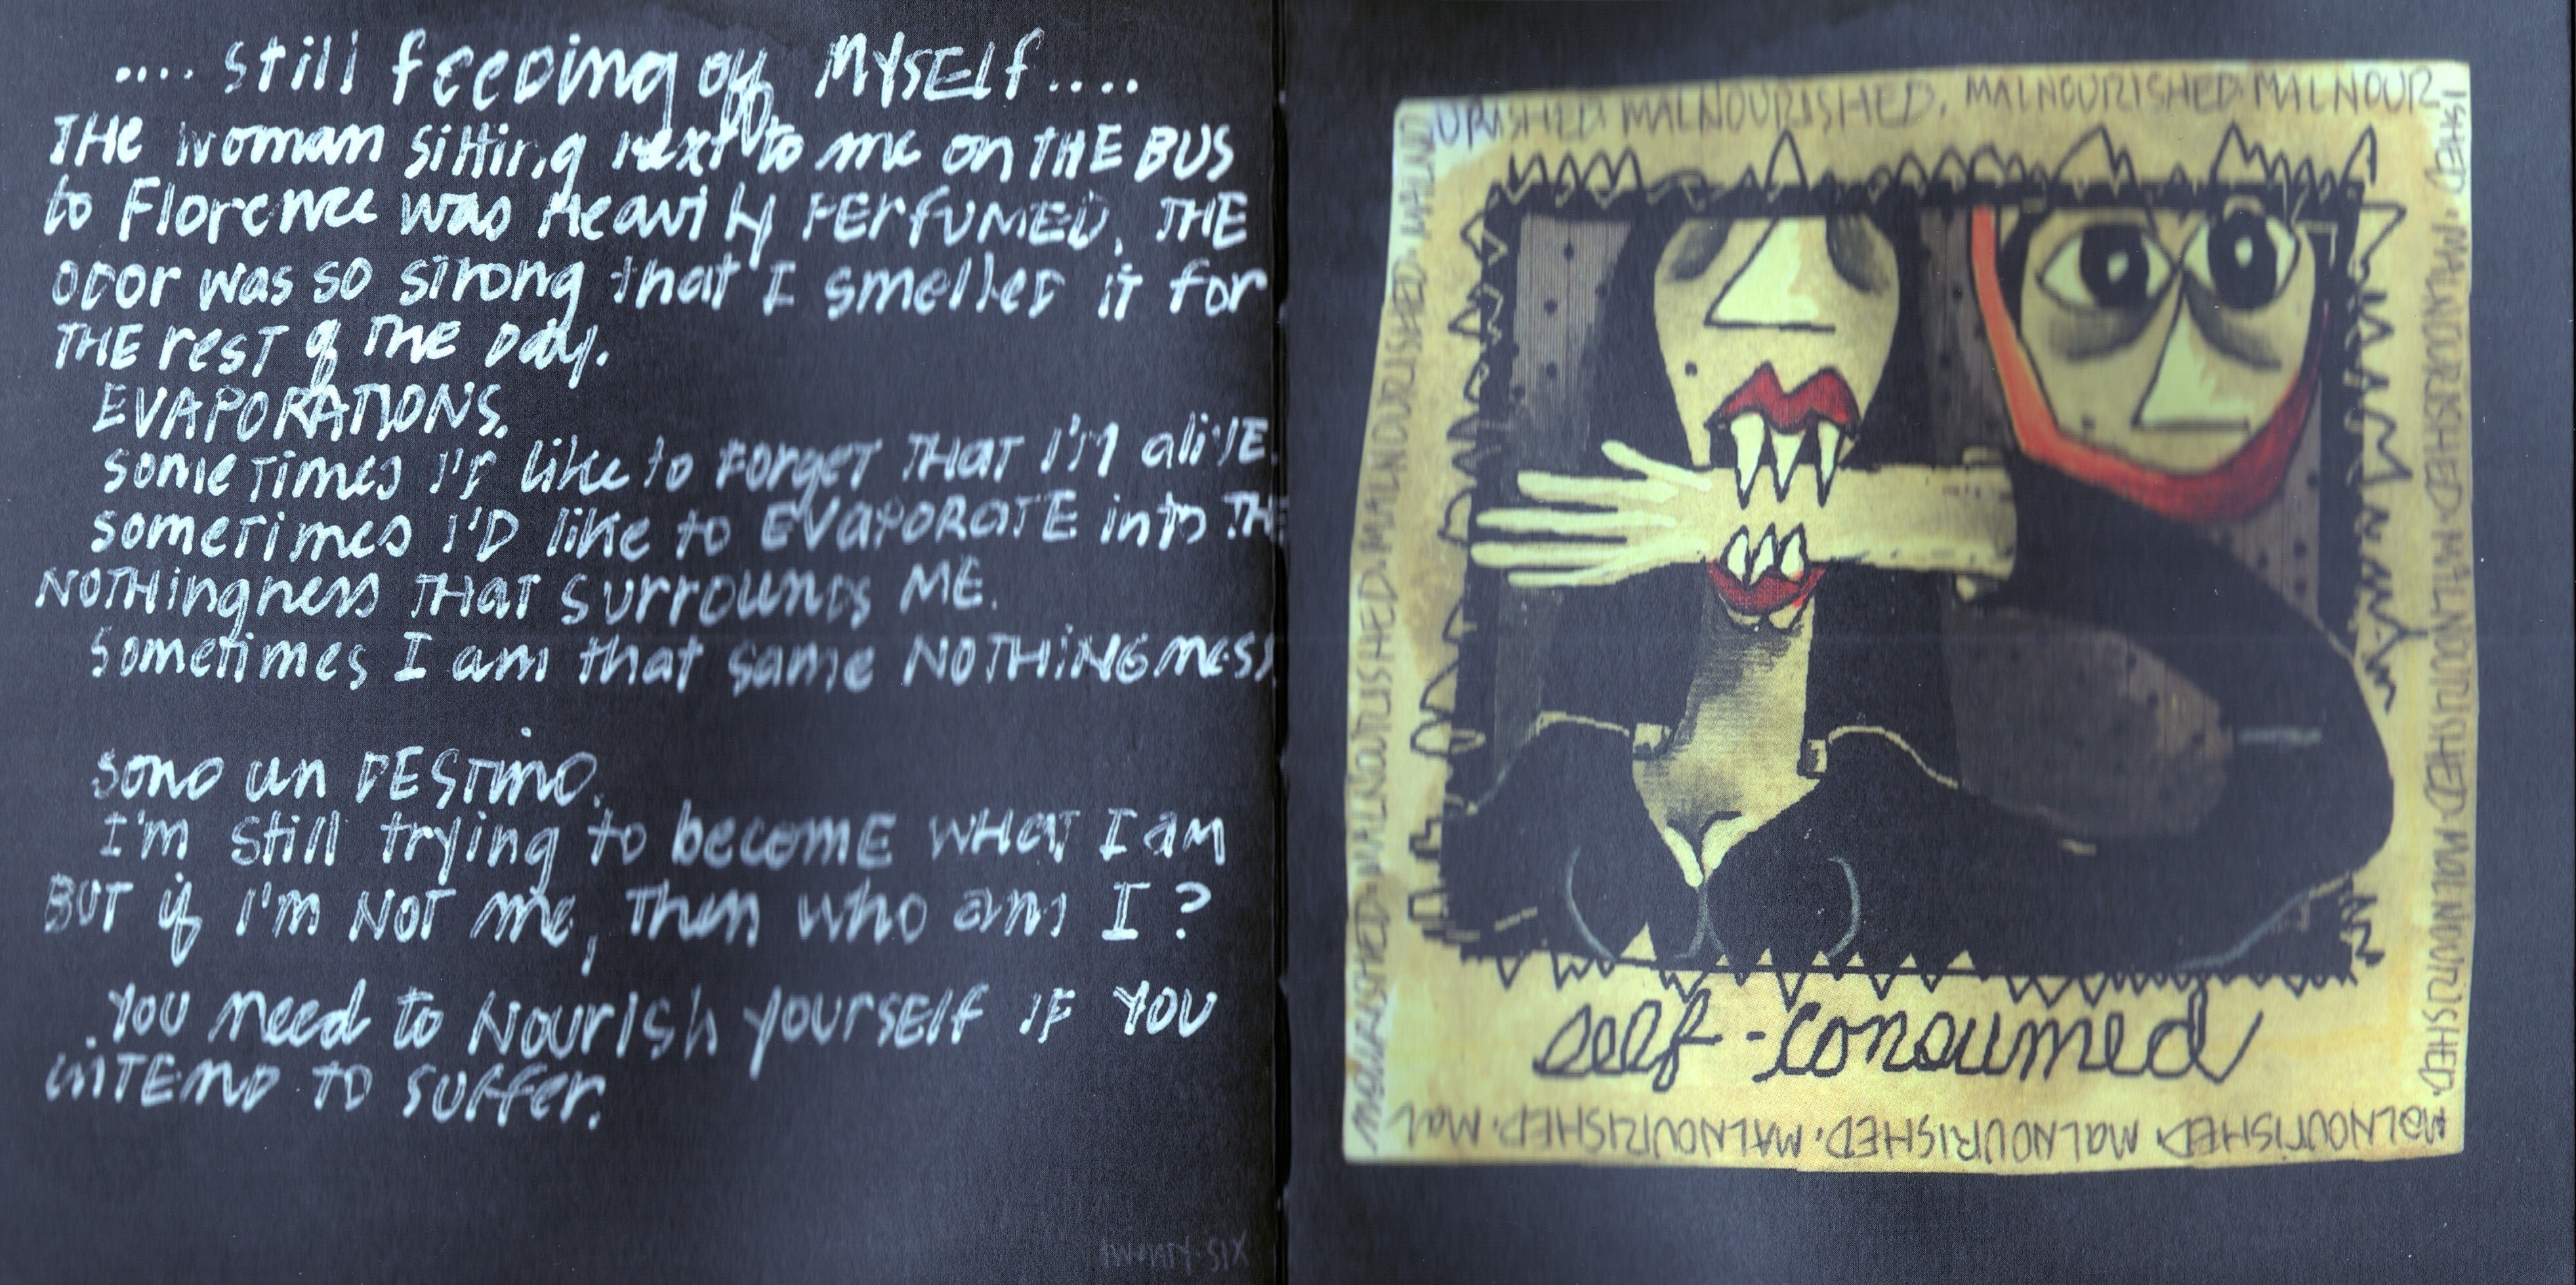 .... still feeding off myself....
THE woman sitting next to me on THE BUS
to Florence was heavily PERfUMED. THE
ODOR was so strong that I smelled it for
THE resT of THE DAy.
EVAPORATIONS.
someTimes I'd like to FORGET THAT I'M aliVE.
someTimes I'D like to EVAPORATE into THE
NOTHingness THAT SURROUNDS ME.
Sometimes I am that same NOTHINGness.
sono un DESTino.
I'm still trying to becomE WHAT I am
BUT if I'm NOT me, Then who am I?
you need to NOURISH yoursElf IF YOU
inTEND TO SUFFer.
TWENTY-SIX
URISHED. MALNOURISHED. MALNOURISHED. MALNOUR
ISHED. MALNOURISHED. MALNOURISHED. MALNOURISHED.
MALNOURISHED. MALNOURISHED. MALNOURISHED. MAL
MALNOURISHED. MALNOURISHED. MALNOURISHED. MALNO
self-consumed